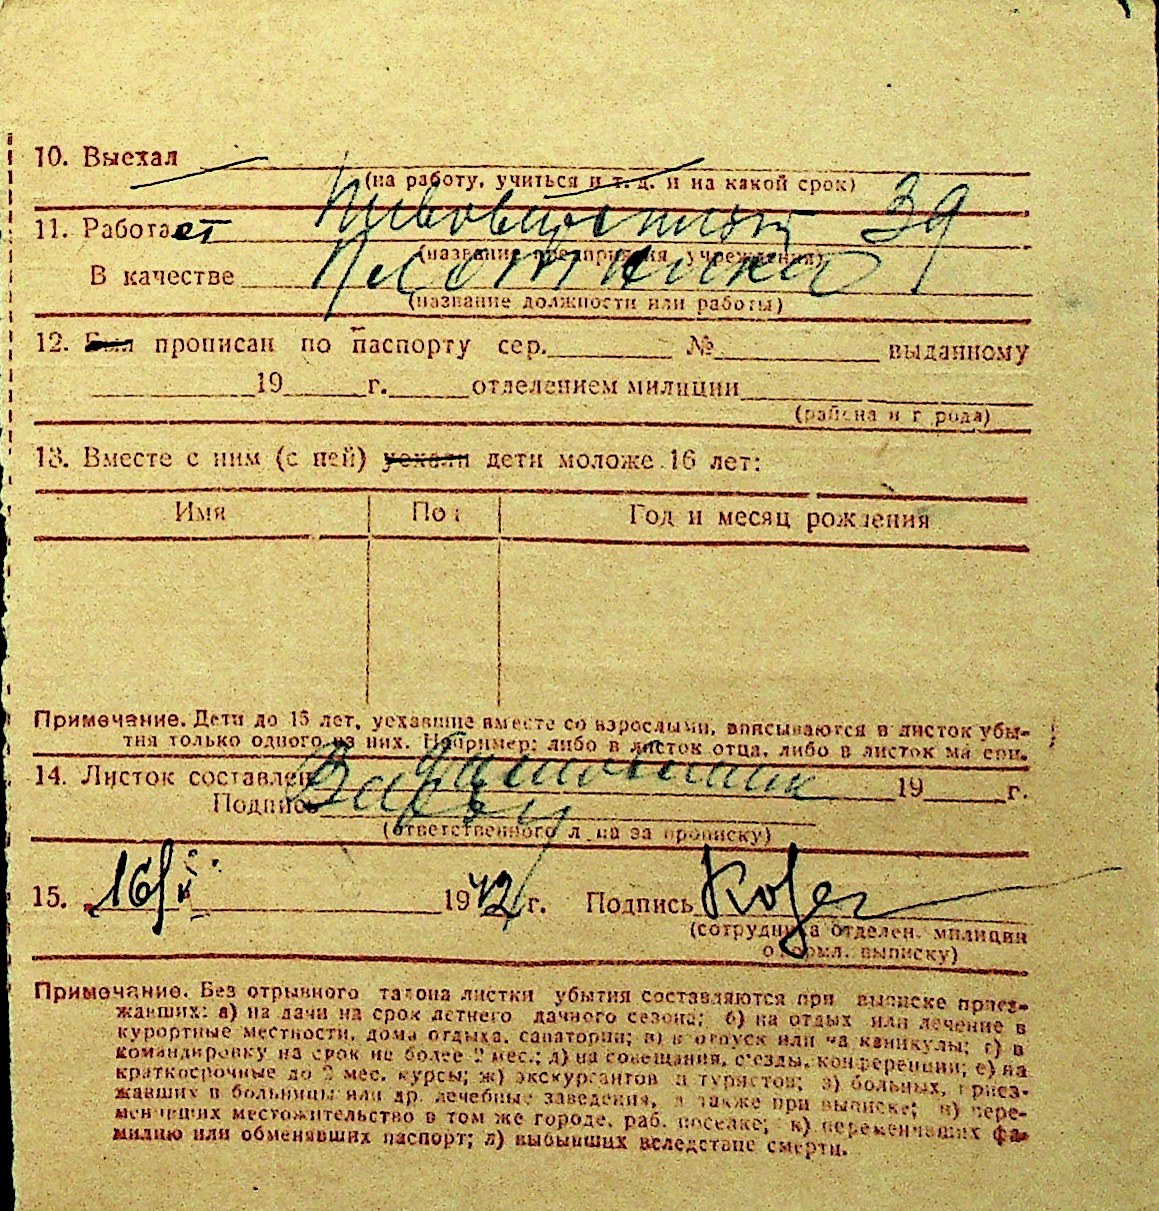 10. Выехал
(на работу, учиться и т. д. и на какой срок)
11. Работает 39
(название предприятия, учреждения)
В качестве
(название должности или работы)
12. Был прописан по паспорту сер. № выданному
19 г. отделением милиции
(района и города)
13. Вместе с ним (с ней) уехали дети моложе 16 лет:
Имя Пол Год и месяц рождения
Примечание. Дети до 15 лет, уехавшие вместе со взрослыми, вписываются в листок убы-
тия только одного из них. Например: либо в листок отца, либо в листок матери.
14. Листок составлен 19 г.
Подпись
(ответственного лица за прописку)
15. 16/X 1942 г. Подпись
(сотрудника отделен. милиции
оформл. выписку)
Примечание. Без отрывного талона листки убытия составляются при выписке приез-
жавших: а) на дачи на срок летнего дачного сезона; б) на отдых или лечение в
курортные местности, дома отдыха, санатории; в) в отпуск или на каникулы; г) в
командировку на срок не более 2 мес.; д) на совещания, с'езды, конференции; е) на
краткосрочные до 2 мес. курсы; ж) экскурсантов и туристов; з) больных, приез-
жавших в больницы или др. лечебные заведения, а также при выписке; и) пере-
менивших местожительство в том же городе, раб. поселке; к) переменивших фа-
милию или обменявших паспорт; л) выбывших вследствие смерти.